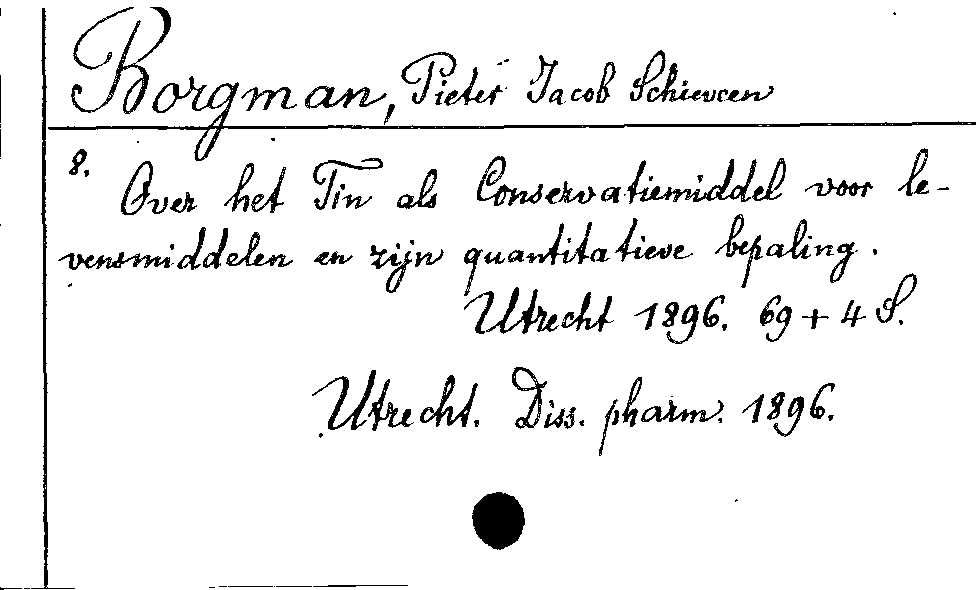 Borgman, Pieter Jacob Schieveen
8. Over het Tin als Conservatiemiddel voor le-
vensmiddelen en zijn quantitatieve bepaling.
Utrecht 1896. 69 + 4 S.
Utrecht. Diss. pharm. 1896.